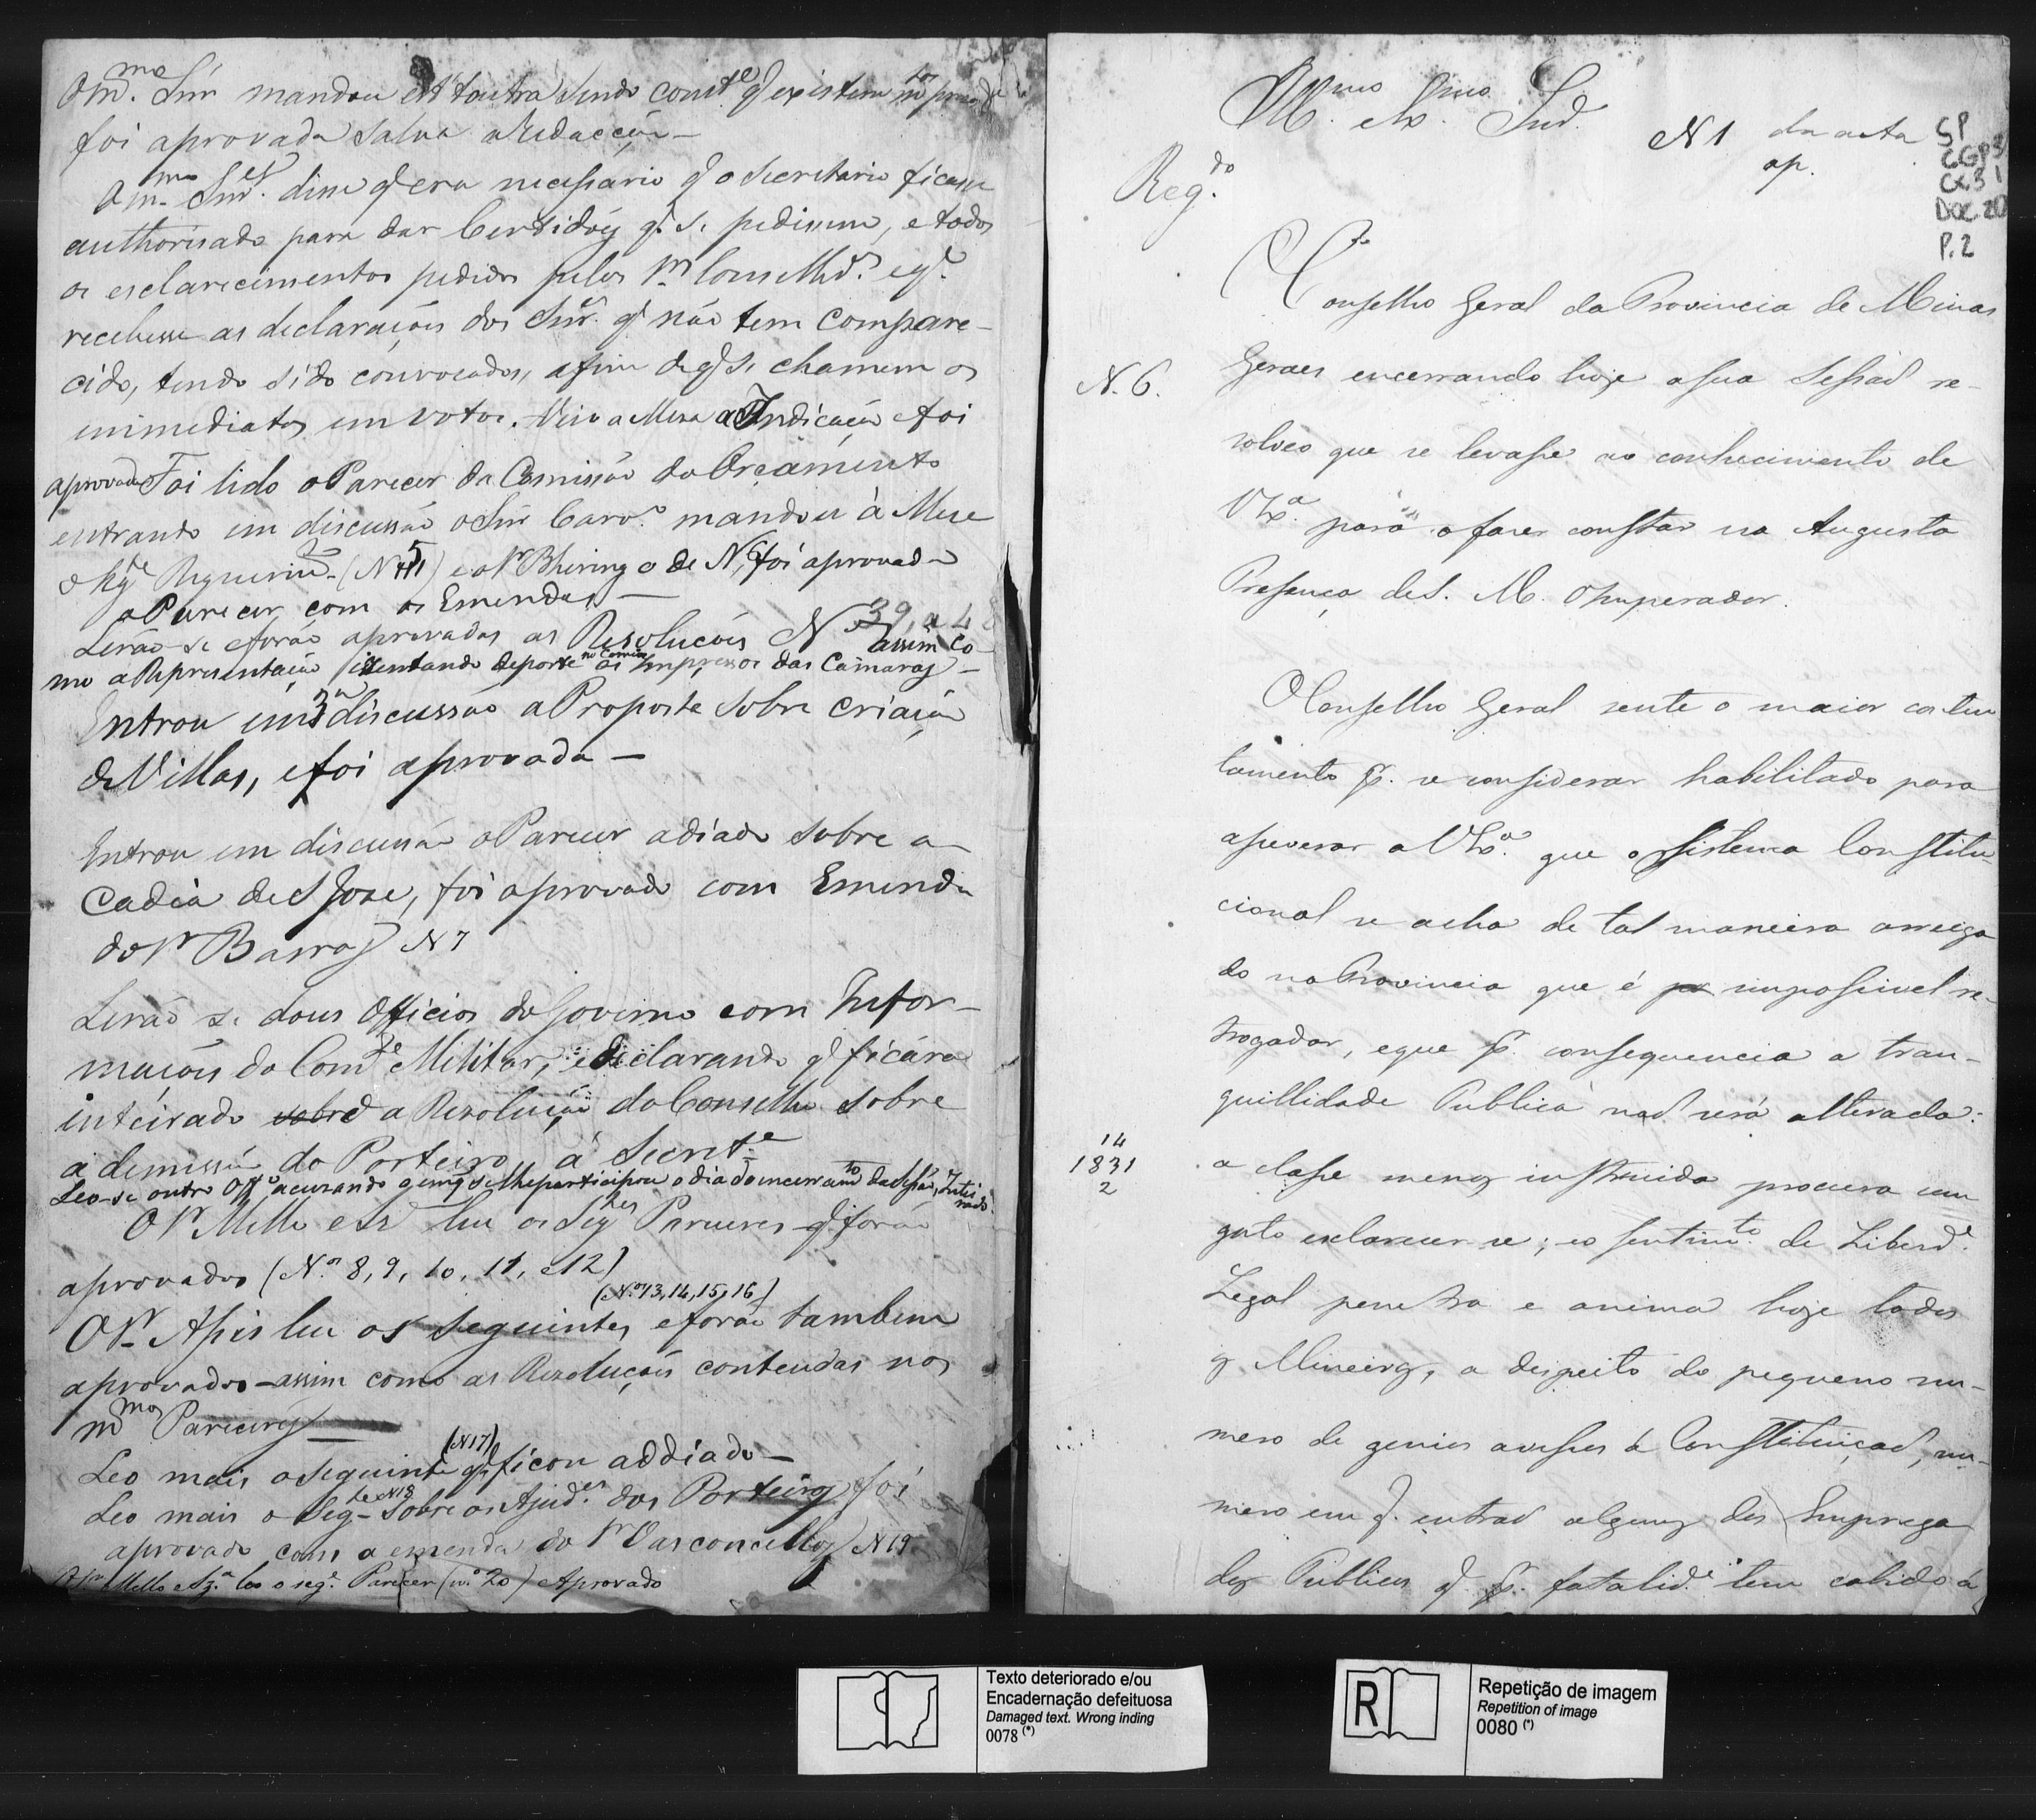 O mmo. Snr mandou outra sendo const.e q existem
foi aprovada salva a redacção —
O mmo Snr. disse q era necessario q o Secretario ficasse
authorisado para dar Certidoẽs q se pedissem, e todos
os esclarecimentos pedidos pelos Srs Conselhr.os e q.
recebesse as declaraçoẽs dos Snr.es q não tem compare-
cido, tendo sido convocados, afim de q se chamem os
immediatos em votos. Veio a Mesa a Indicação e foi
aprovada Foi lido o Parecer da Comissão do Orçamento
entrando em discussão o Snr Carv.o mandou à Mesa
o seg.e Requerim.to (N 5) e o Sr Bhering o de N 6, foi aprovado
o Parecer com as Emendas —
Lerão-se e forão aprovadas as Resoluçoẽs N 39, a 48 assim co-
mo a Representação izentando de porte no Correio os Impressos das Camaras —
Entrou em 3a discussão a Proposta sobre criação
de Villas, e foi aprovada —
Entrou em discussão o Parecer adiado sobre a
Cadêa de S Jose, foi aprovado com Emenda
do Sr Barros N 7
Lerão se dous Officios do Governo com Infor-
maçoẽs do Com.de Militar, e declarando q ficára
inteirado sobre a Resolução do Conselho sobre
a demissão do Porteiro, á Secret.e
Leo-se outro Off.o acuzando q em q se lhe participou o dia do encerram.to da Sessão, Intei
rado.
O Sr Mello e Sz leu os Seg.tes Pareceres q forão
aprovados (N.os 8, 9, 10, 11, e 12)
(N.os 13, 14, 15, 16)
O Sr Assis leu os seguintes e forão tambem
aprovados — assim como as Resoluçoẽs contendas nos
mmos Pareceres —
Leo mais o seguinte (N 17) q ficou addiado —
Leo mais o Seg.te N 18 sobre os Ajud.es dos Porteiros foi
aprovado com a emenda do Sr Vasconcellos N 19
O Sr Mello e Sz.a leo o seg.e Parecer (n.o 20) Aprovado
Illmo. Exmo. Snr.
N 1 da acta
ap.
SP
CGP3
CX.31
DOC.20
P.2
Reg.do
O Conselho Geral da Provincia de Minas
N. 6.
Geraes encerrando hoje a sua Sessaõ re-
solveo que se levasse ao conhecimento de
V Ex.a para o fazer constar na Augusta
Presença de S. M. O Imperador.
O Conselho Geral sente o maior conten
tamento p. se considerar habilitado para
asseverar a V Ex.a que o Sistema Constitu
cional se acha de tal maneira arreiga
do na Provincia que é impossivel re-
trogadar, e que p. consequencia a tran-
quillidade Publica naõ será alterada:
14
1831
2
a classe menos instruida procura com
gosto esclarecer se; e o sentim.to de Liberd.e
Legal penetra e anima hoje todos
os Mineiros, a despeito do pequeno nu-
mero de genios avessos à Constituiçaõ, nu-
mero em q. entraõ alguns dos Emprega
dos Publicos q. p. fatalid.e tem cabido à
Texto deteriorado e/ou
Encadernação defeituosa
Damaged text. Wrong inding
0078 (*)
R
Repetição de imagem
Repetition of image
0080 (*)